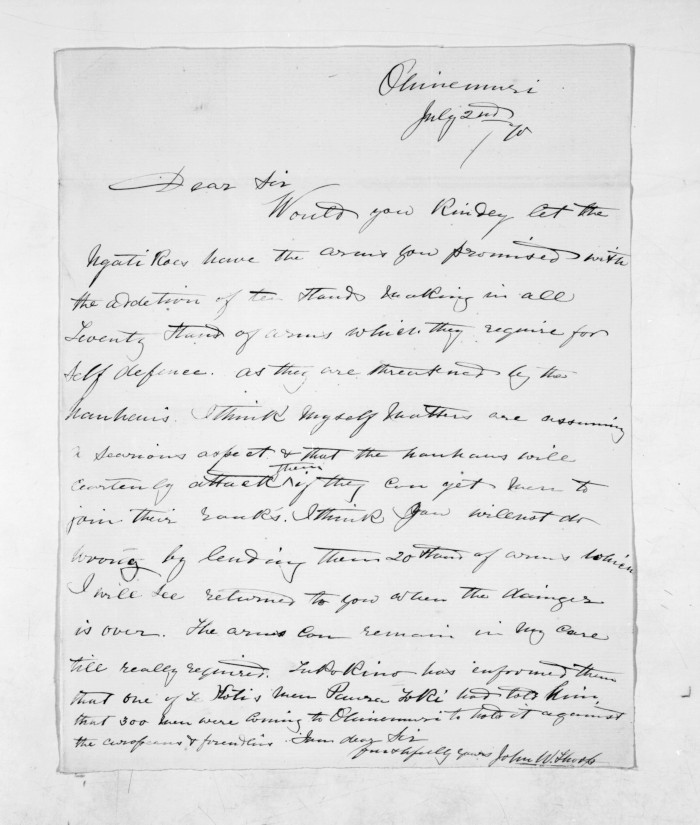 Ohinemuri
July 2nd /70
Dear Sir
Would you kindey let the
Ngati Koes have the arms you promised with
the addetion of ten Stand making in all
Twenty Stand of arms which they require for
self defence. as they are threatned by the
hauhaus. I think myself matters are assuming
a searious aspect & that the hauhaus will
ceartenly attack them if they can get men to
join their ranks. I think you will not do
wrong by lending them 20 stand of arms which
I will see returned to you when the dainger
is over. The arms can remain in my care
till really required. Tukokino has enformed them
that one of Te Kotis men Toki had told him
that 300 men were coming to Ohinemuri to hold it against
the europeans & friendlies. I am dear Sir
faithfully yours John W. Thorp